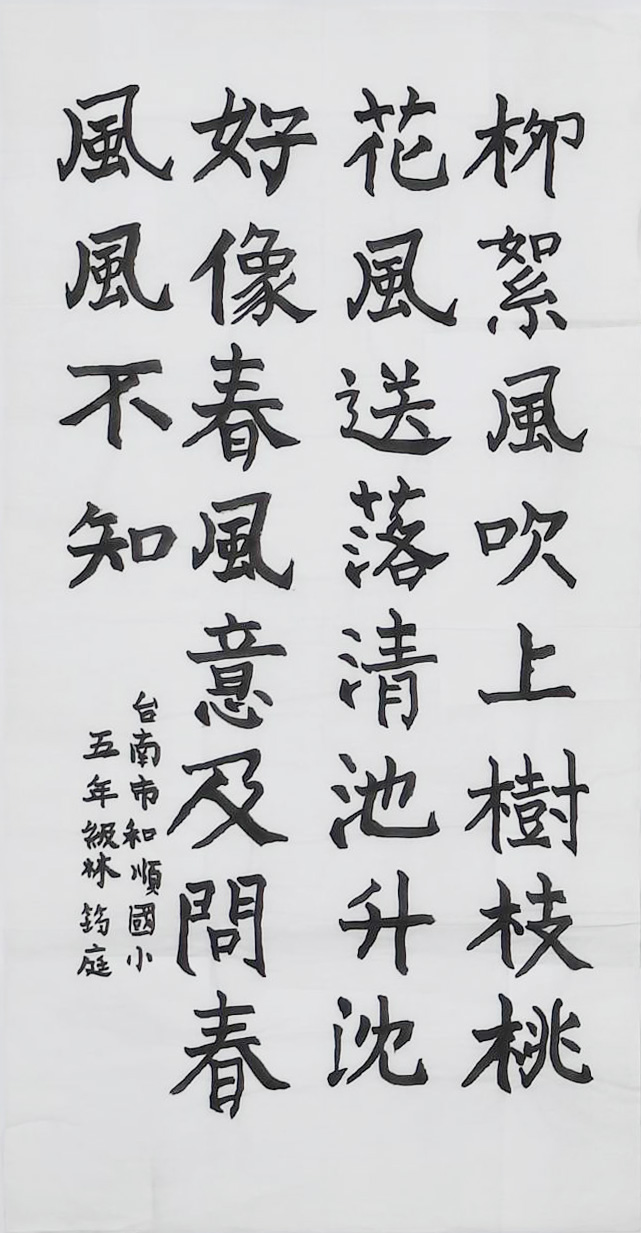 柳絮風吹上樹枝桃
花風送落清池升沈
好像春風意及問春
風風不知
台南市和順國小
五年級林筠庭